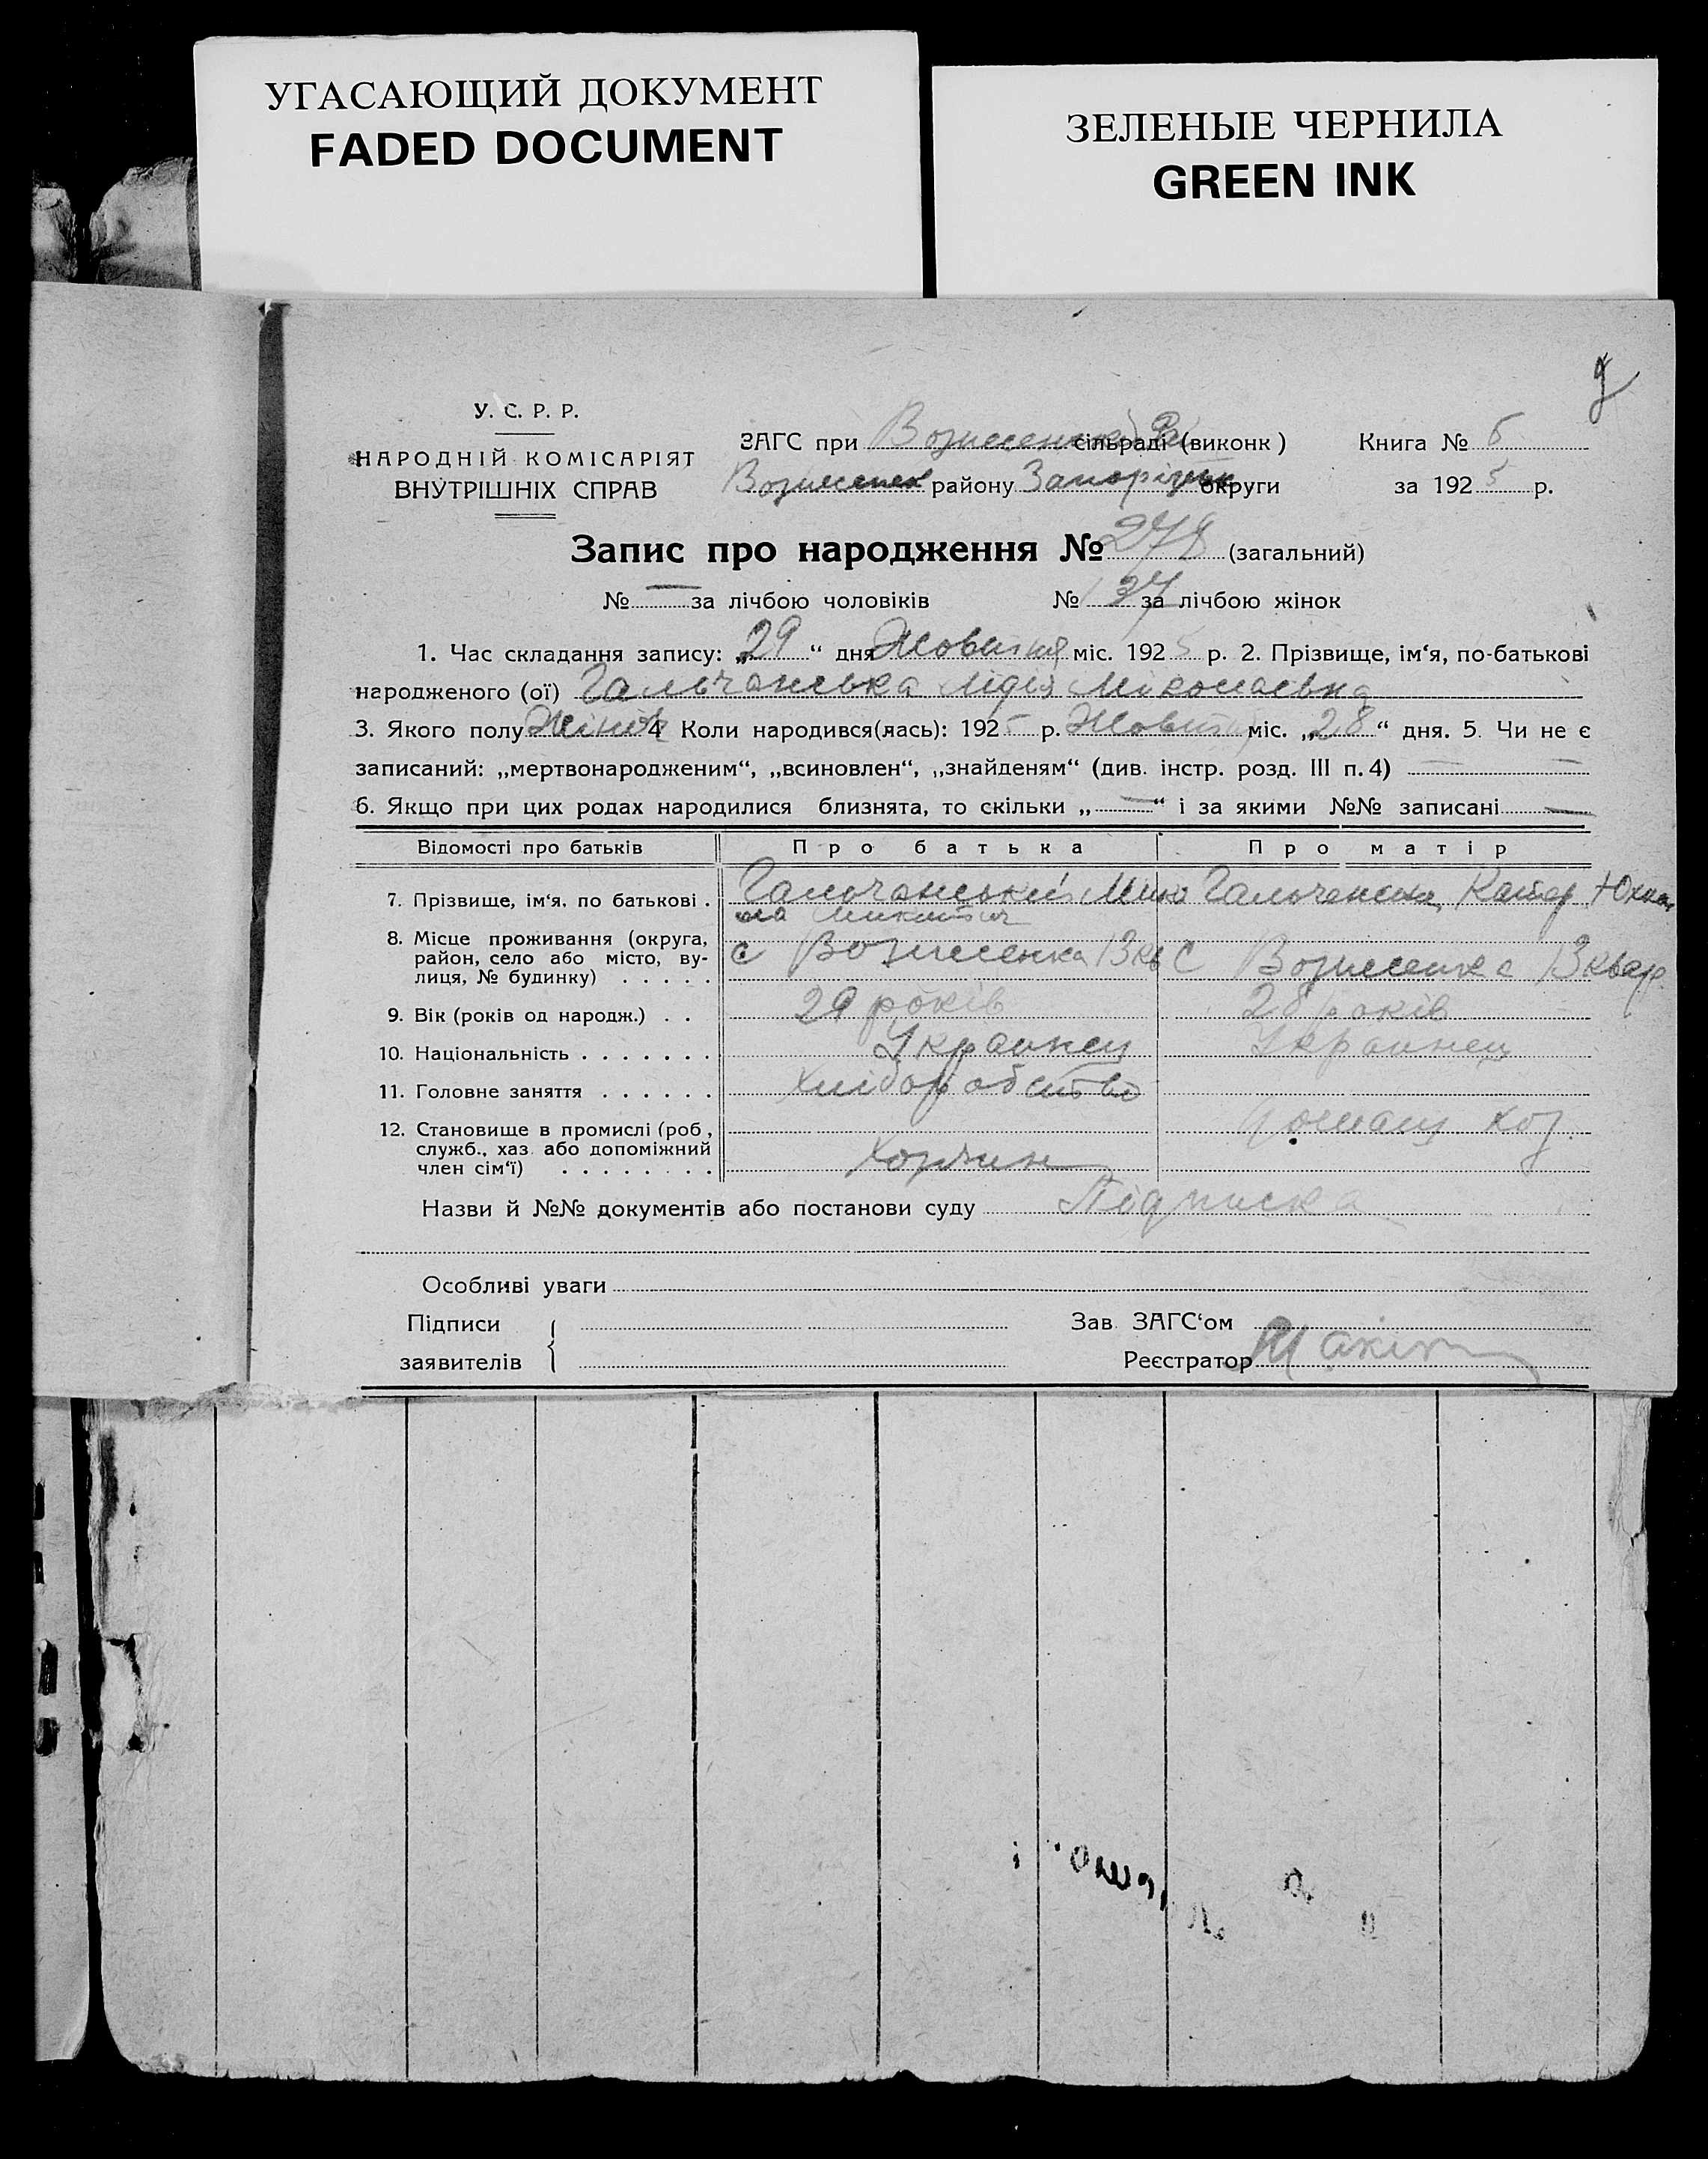 УГАСАЮЩИЙ ДОКУМЕНТ
FADED DOCUMENT
ЗЕЛЕНЫЕ ЧЕРНИЛА
GREEN INK
У. С. Р. Р.
НАРОДНІЙ КОМІСАРІЯТ
ВНУТРІШНІХ СПРАВ
ЗАГС при Вознесенській сільраді (виконк) Книга № 5
Вознесенк району Запорізьк округи за 1925 р.
Запис про народження № 278 (загальний)
№ — за лічбою чоловіків № 137 за лічбою жінок
1. Час складання запису: „29“ дня Жовтня міс. 1925 р. 2. Прізвище, ім‘я, по-батькові
народженого (ої) Гальчанська Лідія Міколаєвна
3. Якого полу Жіноч 4 Коли народився(лась): 1925 р. Жовтня міс. „28“ дня. 5. Чи не є
записаний: „мертвонародженим“, „всиновлен“, „знайденям“ (див. інстр. розд. III п. 4) — —
6. Якщо при цих родах народилися близнята, то скільки „—“ і за якими №№ записані —
Відомості про батьків Про батька Про матір
7. Прізвище, ім‘я, по батькові . Гальчанський Мико Гальчанська Катер
ла Микитич
8. Місце проживання (округа, район, село або місто, вулиця, № будинку) . . . . . с Вознесенка 13 кв с Вознесенка 13 квар
9. Вік (років од народж.) . . 29 років 28 років
10. Національність . . . . . . . Украинец Украинец
11. Головне заняття . . . . . . Хліборобство
12. Становище в промислі (роб, служб., хаз. або допоміжний член сім‘ї) . . . . . . . . домаш хоз.
Назви й №№ документів або постанови суду Підписка
Особливі уваги
Підписи
заявителів
Зав. ЗАГС‘ом
Реєстратор